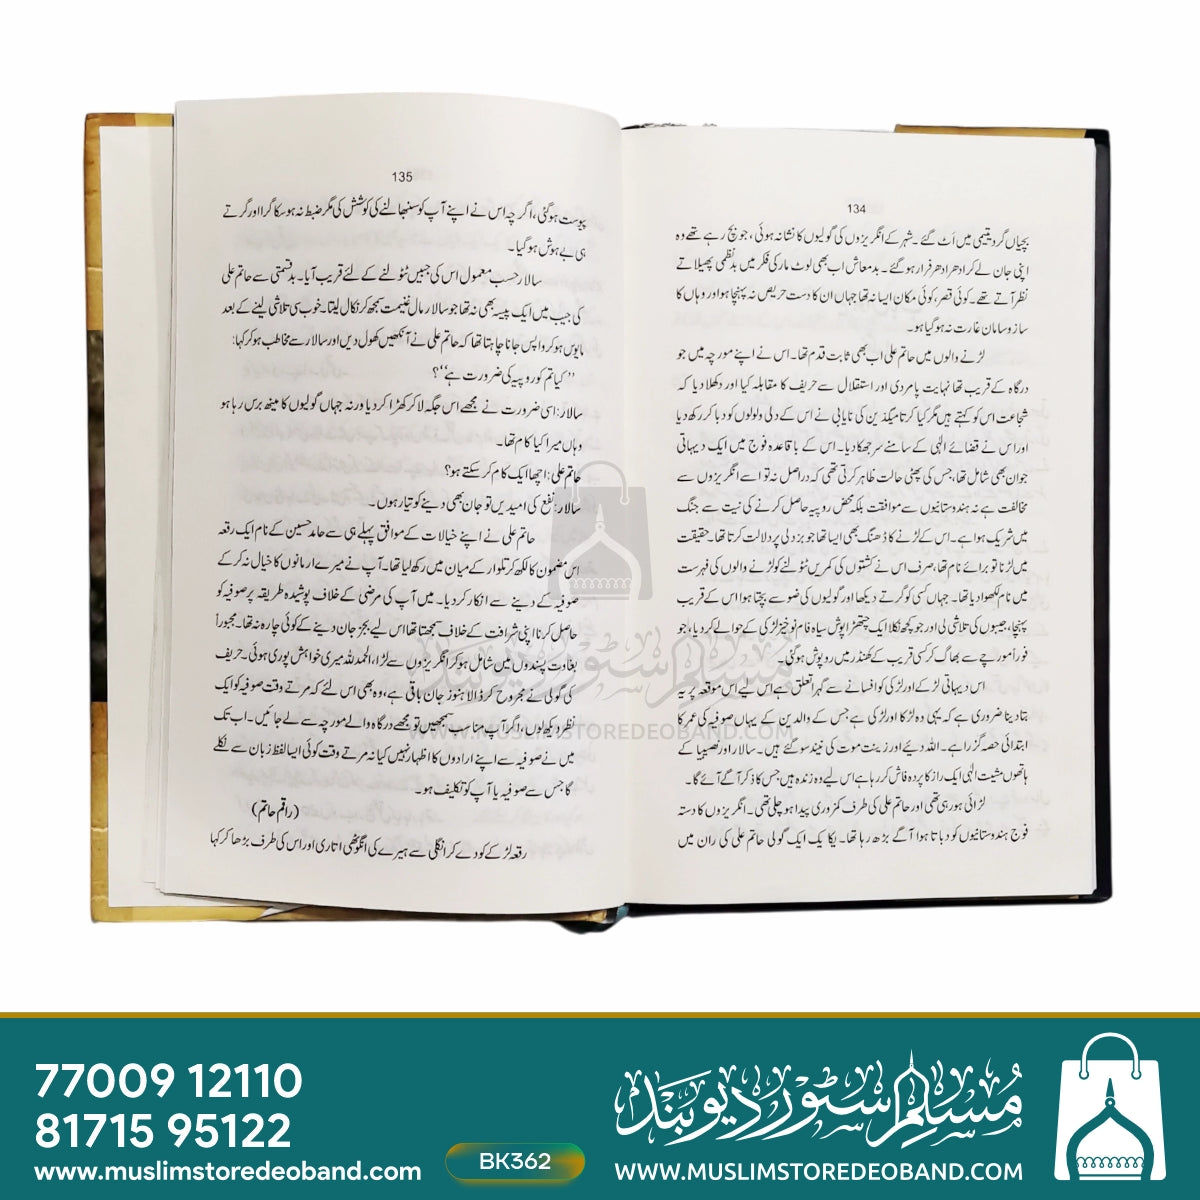 134
بچیاں گرد یتیمی میں اَٹ گئے۔ شہر کے انگریزوں کی گولیوں کا نشانہ ہوئی، جو بچ رہے تھے وہ
اپنی جان لے کر ادھر ادھر فرار ہو گئے۔ بدمعاش اب بھی لوٹ مار کی فکر میں بدنظمی پھیلاتے
نظر آتے تھے۔ کوئی قصر، کوئی مکان ایسا نہ تھا جہاں ان کا دست حریص نہ پہنچا ہو اور وہاں کا
ساز و سامان غارت نہ ہو گیا ہو۔
لڑنے والوں میں حاتم علی اب بھی ثابت قدم تھا۔ اس نے اپنے مورچہ میں جو
درگاہ کے قریب تھا نہایت پامردی اور استقلال سے حریف کا مقابلہ کیا اور دکھلا دیا کہ
شجاعت اس کو کہتے ہیں مگر کیا کرتا میگذین کی نایابی نے اس کے دلی ولولوں کو دبا کر رکھ دیا
اور اس نے قضائے الٰہی کے سامنے سر جھکا دیا۔ اس کے باقاعدہ فوج میں ایک دیہاتی
جوان بھی شامل تھا، جس کی پھٹی حالت ظاہر کرتی تھی کہ دراصل نہ تو اسے انگریزوں سے
مخالفت ہے نہ ہندوستانیوں سے موافقت بلکہ محض روپیہ حاصل کرنے کی نیت سے جنگ
میں شریک ہوا ہے۔ اس کے لڑنے کا ڈھنگ بھی ایسا تھا جو بزدلی پر دلالت کرتا تھا۔ حقیقت
میں لڑنا تو برائے نام تھا، صرف اس نے کشتوں کی کمریں ٹٹولنے کو لڑنے والوں کی فہرست
میں نام لکھوا دیا تھا۔ جہاں کسی کو گرتے دیکھا اور گولیوں کی ضو سے بچتا ہوا اس کے قریب
پہنچا، جیبوں کی تلاشی لی اور جو کچھ نکلا ایک چیتھڑا پوش سیاہ فام نوخیز لڑکی کے حوالے کر دیا، جو
فوراً مورچے سے بھاگ کر کسی قریب کے کھنڈر میں روپوش ہو گئی۔
اس دیہاتی لڑکے اور لڑکی کو افسانے سے گہرا تعلق ہے اس لیے اس موقعہ پر یہ
بتا دینا ضروری ہے کہ یہی وہ لڑکا اور لڑکی ہے جس کے والدین کے یہاں صوفیہ کی عمر کا
ابتدائی حصہ گزرا ہے۔ اللہ دئے اور زینت موت کی نیند سو گئے ہیں۔ سالار اور نصیبا کے
ہاتھوں مشیت الٰہی ایک راز کا پردہ فاش کر رہا ہے اس لیے وہ زندہ ہیں جس کا ذکر آگے آئے گا۔
لڑائی ہو رہی تھی اور حاتم علی کی طرف کمزوری پیدا ہو چلی تھی۔ انگریزوں کا دستہ
فوج ہندوستانیوں کو دباتا ہوا آگے بڑھ رہا تھا۔ یکایک ایک گولی حاتم علی کی ران میں
135
پیوست ہو گئی، اگرچہ اس نے اپنے آپ کو سنبھالنے کی کوشش کی مگر ضبط نہ ہو سکا گرا اور گرتے
ہی بے ہوش ہو گیا۔
سالار حسب معمول اس کی جیبیں ٹٹولنے کے لئے قریب آیا۔ بدقسمتی سے حاتم علی
کی جیب میں ایک پیسہ بھی نہ تھا جو سالار مال غنیمت سمجھ کر نکال لیتا۔ خوب سی تلاشی لینے کے بعد
مایوس ہو کر واپس جانا چاہتا تھا کہ حاتم علی نے آنکھیں کھول دیں اور سالار سے مخاطب ہو کر کہا:
”کیا تم کو روپیہ کی ضرورت ہے“؟
سالار: اسی ضرورت نے مجھے اس جگہ لا کر کھڑا کر دیا ورنہ جہاں گولیوں کا مینھ برس رہا ہو
وہاں میرا کیا کام تھا۔
حاتم علی: اچھا ایک کام کر سکتے ہو؟
سالار: نفع کی امید میں تو جان بھی دینے کو تیار ہوں۔
حاتم علی نے اپنے خیالات کے موافق پہلے ہی سے حامد حسین کے نام ایک رقعہ
اس مضمون کا لکھ کر تلوار کے میان میں رکھ لیا تھا۔ آپ نے میرے ارمانوں کا خیال نہ کر کے
صوفیہ کے دینے سے انکار کر دیا۔ میں آپ کی مرضی کے خلاف پوشیدہ طریقہ پر صوفیہ کو
حاصل کرنا اپنی شرافت کے خلاف سمجھتا تھا اس لیے بجز جان دینے کے کوئی چارہ نہ تھا۔ مجبوراً
بغاوت پسندوں میں شامل ہو کر انگریزوں سے لڑا، الحمد للہ میری خواہش پوری ہوئی۔ حریف
کی گولی نے مجروح کر ڈالا ہنوز جان باقی ہے، وہ بھی اس لئے کہ مرتے وقت صوفیہ کو ایک
نظر دیکھ لوں، اگر آپ مناسب سمجھیں تو مجھے درگاہ والے مورچہ سے لے جائیں۔ اب تک
میں نے صوفیہ سے اپنے ارادوں کا اظہار نہیں کیا نہ مرتے وقت کوئی ایسا لفظ زبان سے نکلے
گا جس سے صوفیہ یا آپ کو تکلیف ہو۔
(راقم حاتم)
رقعہ لڑکے کو دے کر انگلی سے ہیرے کی انگوٹھی اتاری اور اس کی طرف بڑھا کر کہا
مسلم سٹور دیوبند
WWW.MUSLIMSTOREDEOBAND.COM
77009 12110
81715 95122
www.muslimstoredeoband.com
BK362
مسلم سٹور دیوبند
WWW.MUSLIMSTOREDEOBAND.COM